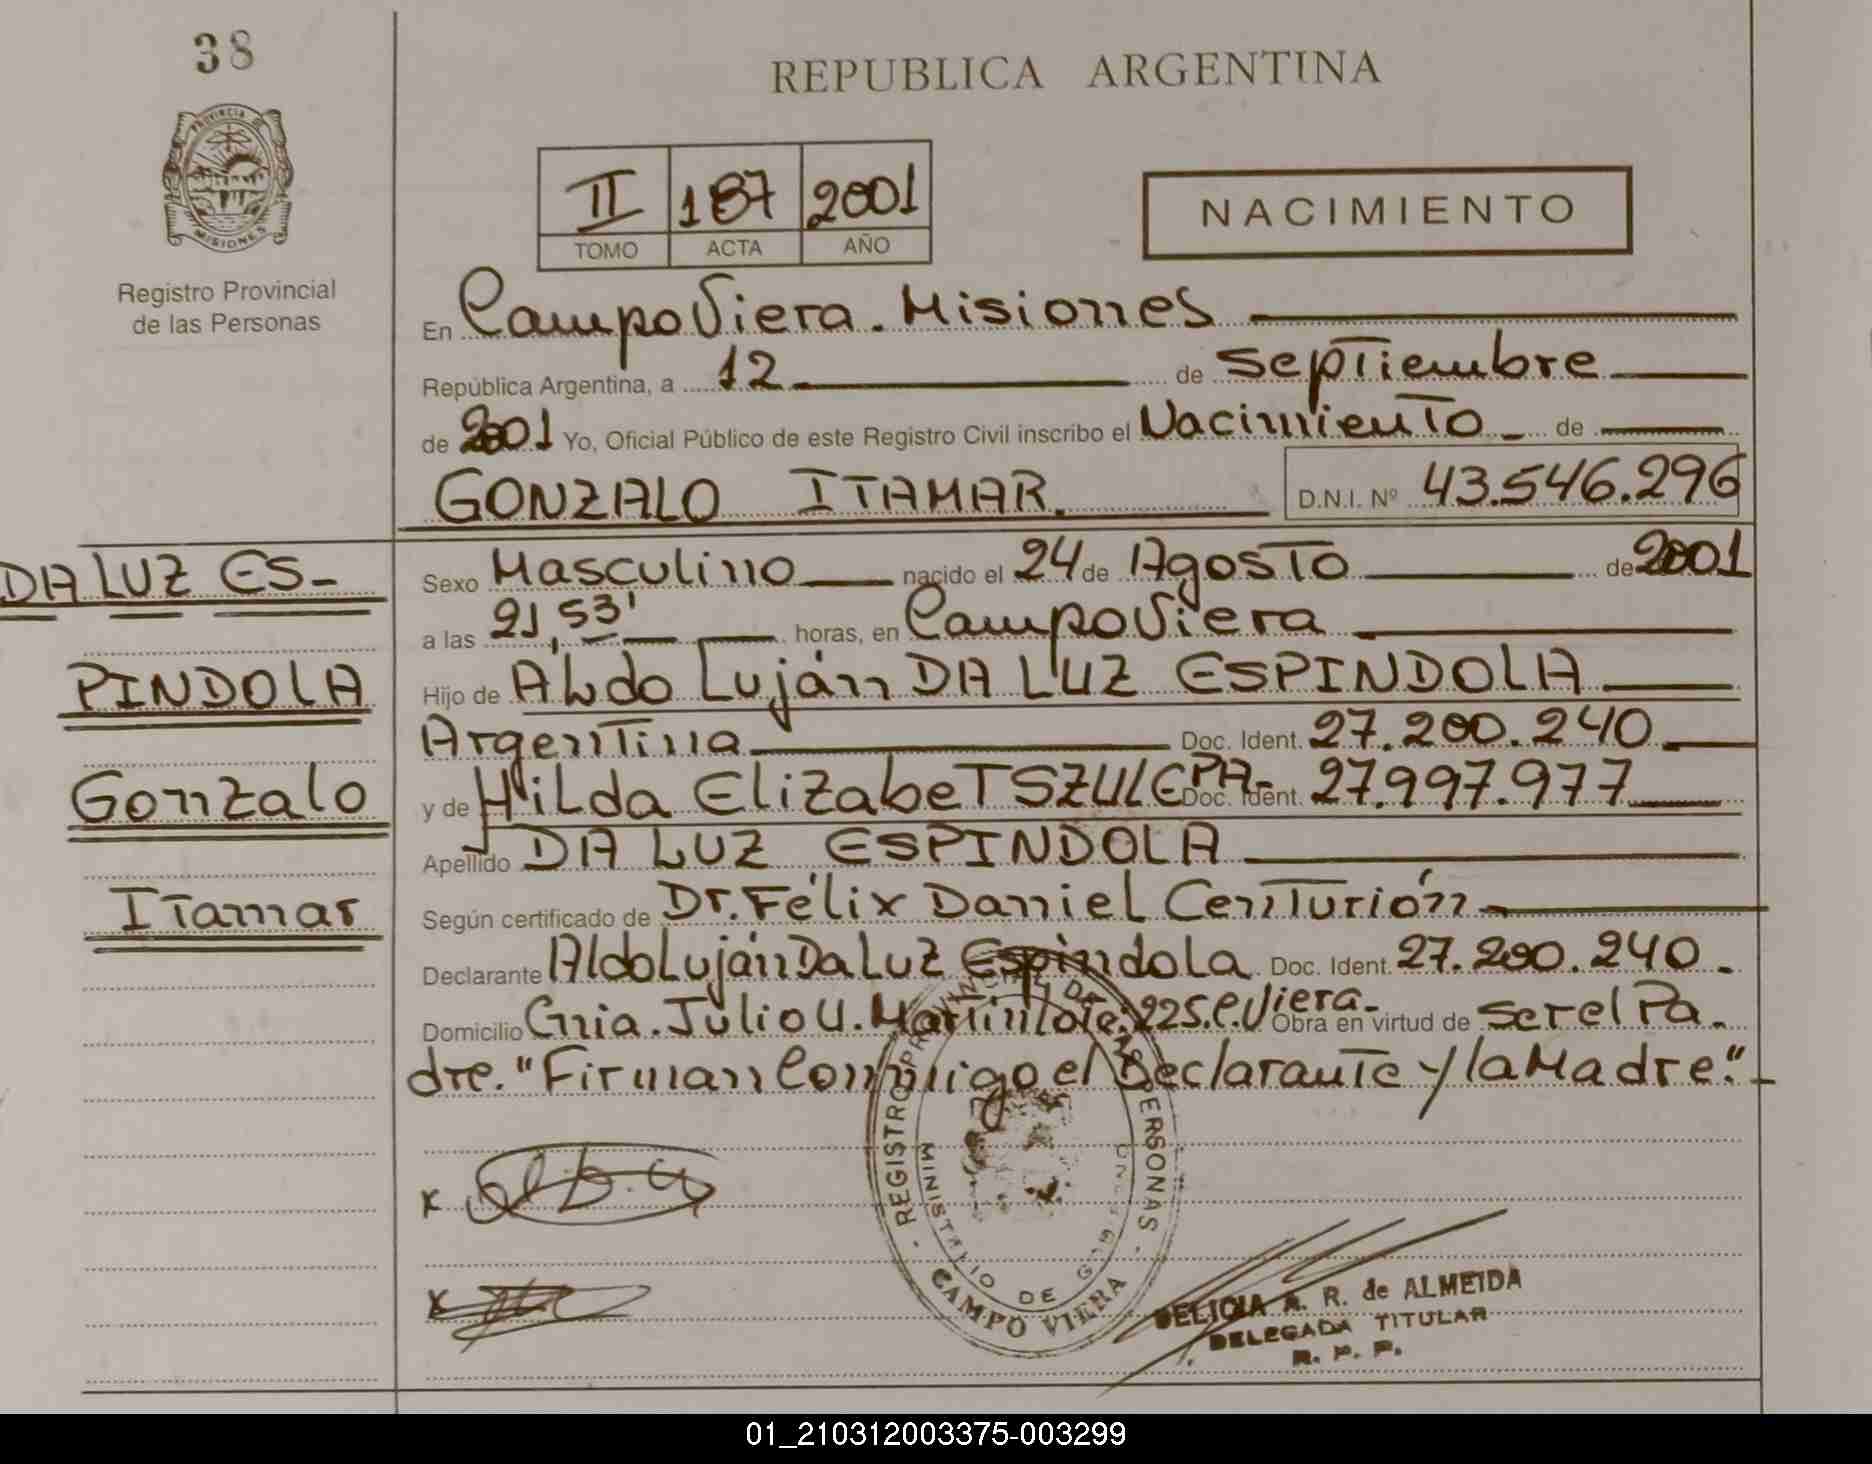 38
REPUBLICA ARGENTINA
PROVINCIA DE
MISIONES
Registro Provincial
de las Personas
II 187 2001
TOMO ACTA AÑO
NACIMIENTO
En Campo Viera. Misiones
República Argentina, a 12 de Septiembre
de 2001 Yo, Oficial Público de este Registro Civil inscribo el Nacimiento de
GONZALO ITAMAR. D.N.I. Nº 43.546.296
DA LUZ ES-
PINDOLA
Gonzalo
Itamar
Sexo Masculino nacido el 24 de Agosto de 2001
a las 21,53' horas, en Campo Viera
Hijo de Aldo Luján DA LUZ ESPINDOLA
Argentina Doc. Ident. 27.200.240
y de Hilda Elizabet SZULEPA- Doc. Ident. 27.997.977
Apellido DA LUZ ESPINDOLA
Según certificado de Dr. Félix Daniel Centurión
Declarante Aldo Luján Da Luz Espindola Doc. Ident. 27.200.240.
Domicilio Julio U. 225. C. Viera- Obra en virtud de ser el Pa-
dre. "Firman Conmigo el Declarante y la Madre".
x
x
REGISTRO PROVINCIAL DE LAS PERSONAS
MINISTERIO DE GOBIERNO
CAMPO VIERA
DELICIA A. R. de ALMEIDA
DELEGADA TITULAR
R. P. P.
01_210312003375-003299